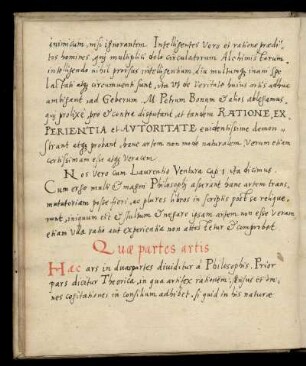 inimicum, nisi ignorantem. Intelligentes vero et ratione praedi-
tos homines, qui multiplici dolo circulatorum Alchimistarum,
intelligendo nihil prorsus intelligentium, diu multumque inani spe
lactati atque circumventi sunt, ita ut de veritate huius artis adhuc
ambigant, ad Geberum, M. Petrum Bonum et alios ablegamus,
qui prolixe pro et contra disputant, et tandem RATIONE, EX-
PERIENTIA et AUTORITATE evidentissime demon-
strant atque probant, hanc artem non modo naturalem verum etiam
certissimam esse atque veram.
Nos vero cum Laurentio Ventura Cap. 1. ita dicimus.
Cum ergo multi et magni Philosophi asserant hanc artem trans-
mutatoriam posse fieri, ac plures libros in scriptis post se relique-
runt, iniquum est et stultum negare ipsam artem non esse veram,
etiam ulla ratio aut experientia non adesset et comprobet.
Quae partes artis
Haec ars in duas partes dividitur a Philosophis. Prior
pars dicitur Theorica, in qua artifex rationem, sensus et om-
nes cogitationes in consilium adhibet, si quid in his naturae